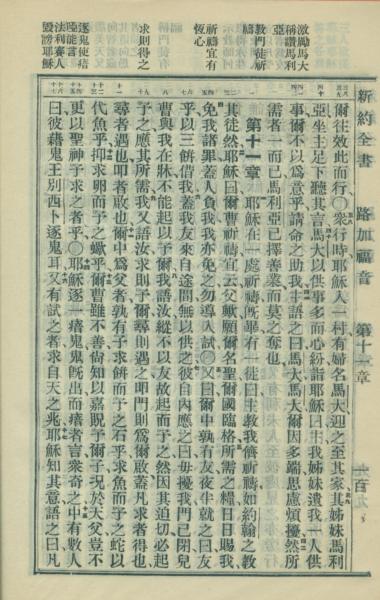 新約全書 路加福音 第十一章 一百九
激勵馬大
稱讚馬利
亞
教門徒祈
禱
祈禱宜有
恆心
求則得之
逐鬼使瘖
瘂能言
法利賽人
毀謗耶穌
爾往效此而行〇衆行時耶穌入一村有婦名馬大迎之至其家其姊妹馬利
亞坐主足下聽其言馬大以供事多而心紛詣耶穌曰主我姊妹遺我一人供
事爾不以爲意乎請命之助我主語之曰馬大馬大爾因多端思慮煩擾然所
需者一而已馬利亞已擇善業而莫之奪也
第十一章 耶穌在一處祈禱旣畢有一徒曰主教我儕祈禱如約翰之教
其徒然耶穌曰爾曹祈禱宜云父歟願爾名聖爾國臨格所需之糧日日賜我
免我諸罪蓋人負我我亦免之勿導入試〇又曰爾中孰有友夜半就之曰友
乎以三餅借我蓋我友來自途間無以供之彼自內應之曰毋擾我門已閉兒
曹與我在牀不能起以予爾我語汝縱不以友故起而予之然因其迫切必起
予之應其所需我又語汝求則予爾尋則遇之叩門則爲爾啟蓋凡求者得也
尋者遇也叩者啟也爾中爲父者孰有子求餅而予之石乎求魚而予之蛇以
代魚乎抑求卵而予之蠍乎爾曹雖不善尚知以嘉貺予爾子況於天父豈不
更以聖神予求之者乎〇耶穌逐一瘖鬼鬼旣出而瘖者言衆奇之中有數人
曰彼藉鬼王別西卜逐鬼耳又有試之者求自天之兆耶穌知其意語之曰凡